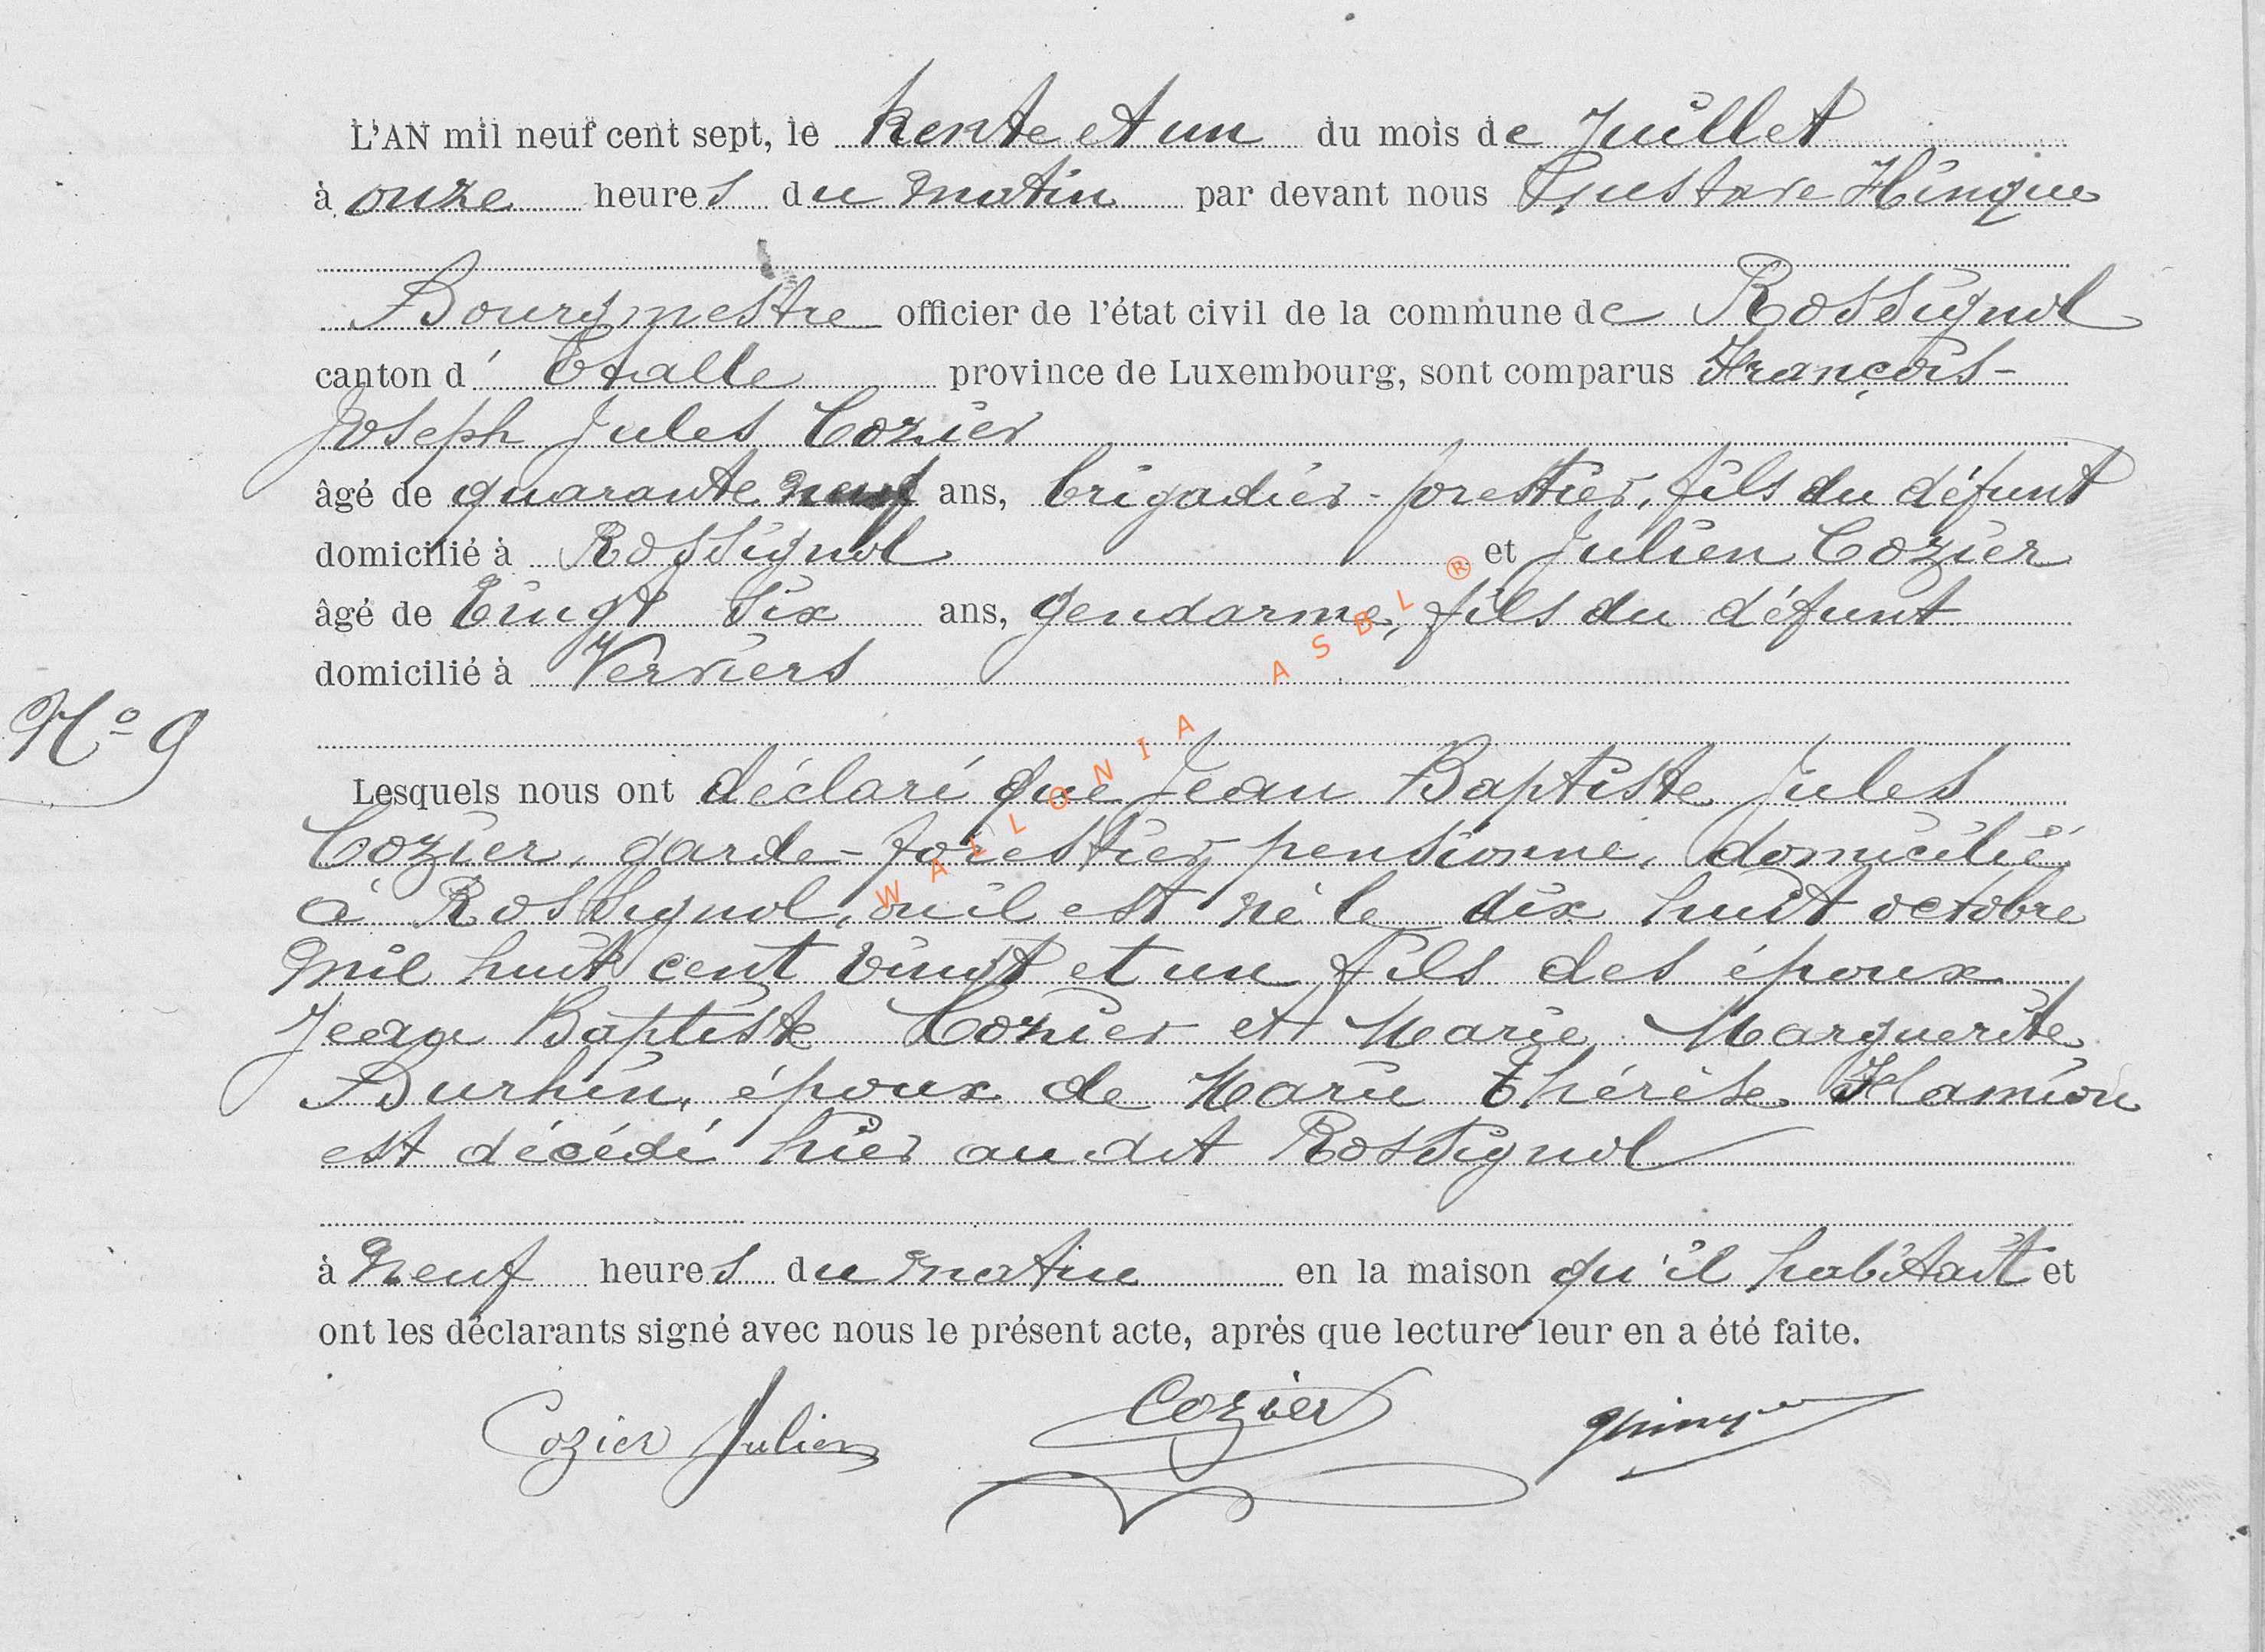 L'AN mil neuf cent sept, le trente et un du mois de Juillet
à onze heures du matin par devant nous Gustave Hinque
Bourgmestre officier de l'état civil de la commune de Rossignol
canton d' Etalle province de Luxembourg, sont comparus François-
Joseph Jules Cozier
âgé de quarante neuf ans, brigadier-forestier, fils du défunt
domicilié à Rossignol et Julien Cozier
âgé de Vingt six ans, gendarme, fils du défunt
domicilié à Verviers
N° 9
Lesquels nous ont déclaré que Jean Baptiste Jules
Cozier, garde-forestier pensionné, domicilié
à Rossignol, où il est né le dix huit octobre
mil huit cent vingt et un fils des époux
Jean Baptiste Cozier et Marie Marguerite
Burhin, époux de Marie Thérèse Hamion
est décédé hier au dit Rossignol
à neuf heures du matin en la maison qu'il habitait et
ont les déclarants signé avec nous le présent acte, après que lecture leur en a été faite.
Cozier Julien Cozier GHinque
WALLONIA ASBL ®